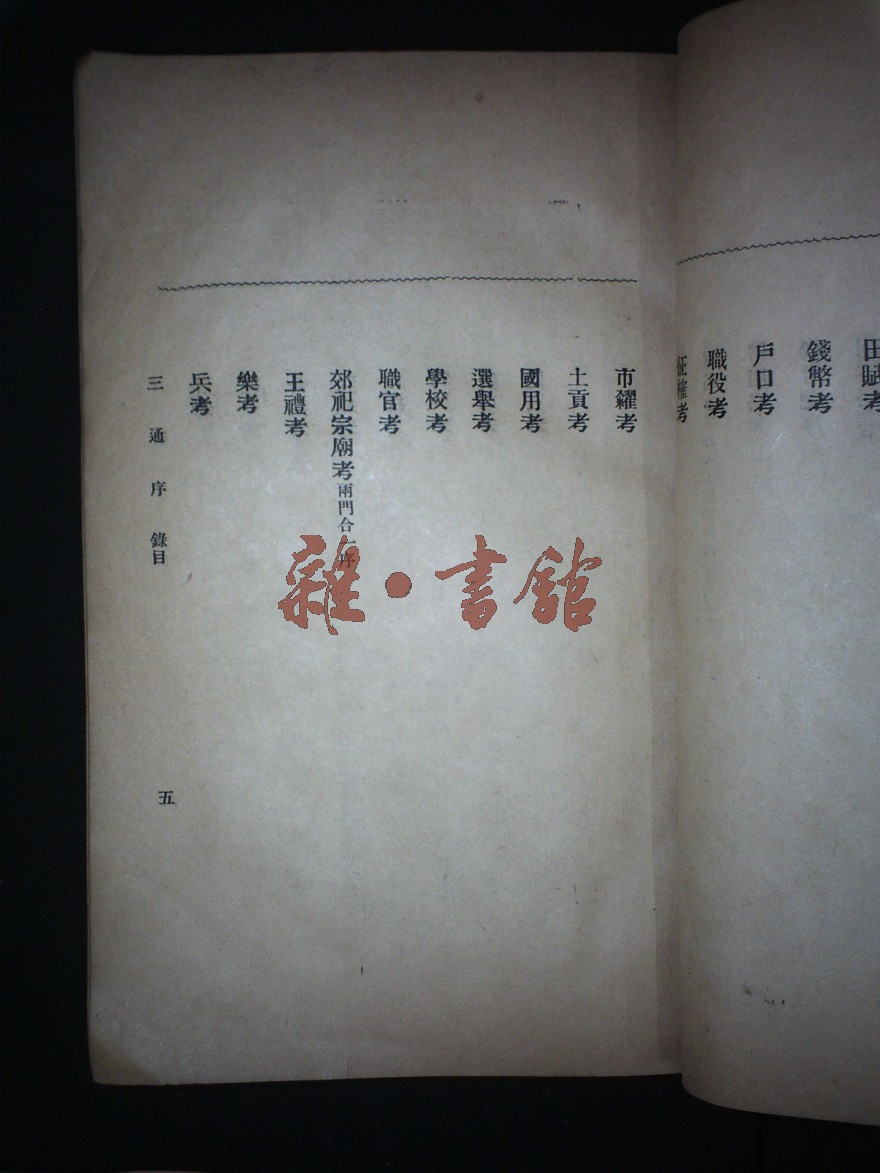 田賦考
錢幣考
戶口考
職役考
征榷考
市糴考
土貢考
國用考
選舉考
學校考
職官考
郊祀宗廟考兩門合一序
王禮考
樂考
兵考
三通序 錄目 五
雜·書館